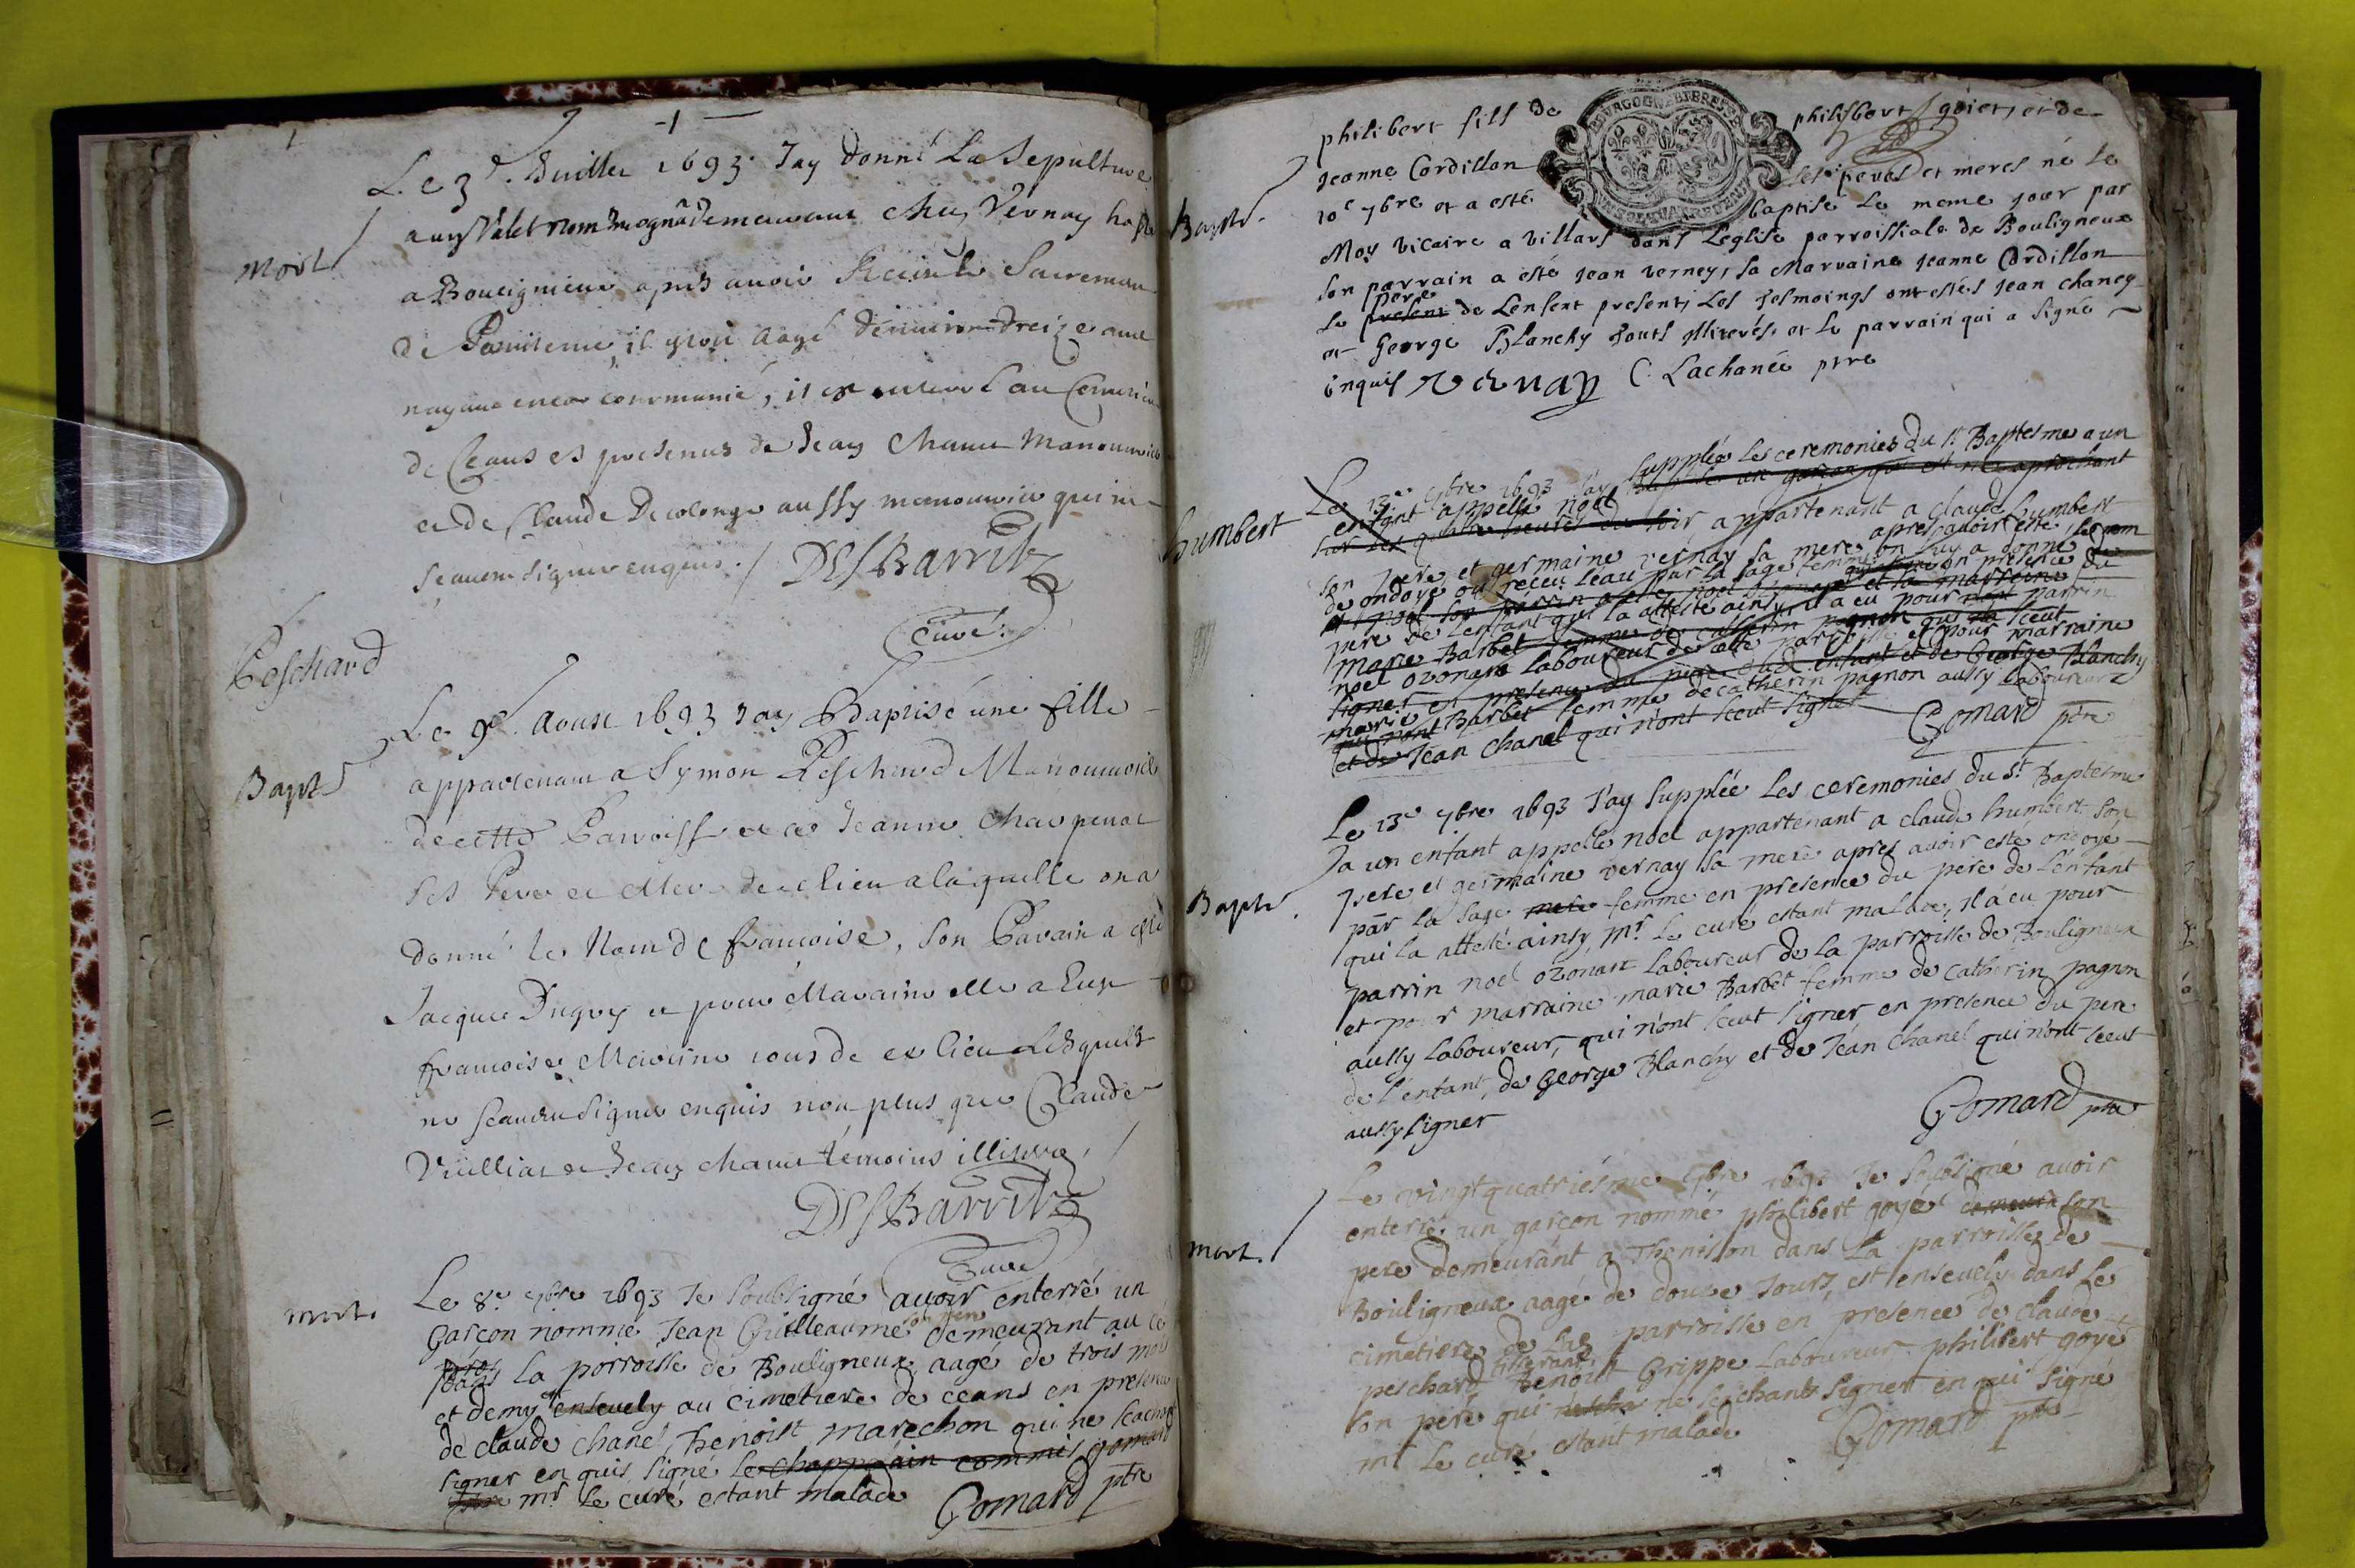 Mort
Le 3e. Juillet 1693. Jay donné La Sepulture
a un Valet demeurant chez Vernay
a Bouligneux apres avoir Receu le Sacrement
de Penitence, il
n'ayant encor communié, il
de Ceans es presences de Jean Chanet Manouvrier
et de Claude Decolonge aussy manouvrier qui ne
scavent signer enquis. / DESBarritz
Curé.
Peschard
Bapt
Le 9e. Aoust 1693 Jay Baptisé une fille
appartenant a Symon Peschard Manouvrier
de cette Parroisse et a Jeanne Charpenet
ses Pere et Mere de ce lieu a laquelle on a
donné le Nom de francoise, son Parain a esté
Jacques Duguy et pour Maraine elle a Eue
francoise tous de ce lieu Lesquels
ne scavent signer enquis non plus que Claude
et Jean Chanet témoins illiteres /
DESBarritz
Curé
mort.
Le 8e. 7bre 1693 Je soubsigné avoir enterré un
Garçon nommé Jean Guilleaume son pere demeurant au
dans la parroisse de Bouligneux aagé de trois mois
et demy ensevely au cimetiere de ceans en presence
de claude chanel, benoist marechon qui ne scachant
signer en quis, signé le chappelain commis gomard
mr le curé estant malade Gomard ptre
Bapte.
philibert fils de philisbert goiet, et de
Jeanne Cordillon ses peres et meres né le
10e 7bre et a esté baptisé le meme jour par
Moy vicaire a villars dans Leglise parroissiale de Bouligneux
son parrain a esté Jean verney, sa Marraine Jeanne Cordillon
le present pere de Lenfent present, Les tesmoings ont estés Jean chaney
et George Blanchy touts illiterés, et le parrain qui a signé
inquis vernay C. Lachanée ptre
humbert
Le 13e 7bre 1693 J'ay supplée les ceremonies du st Baptesme a un
enfant appellé noel
sur les quatre heures du soir appartenant a claude humbert
son pere et germaine vernay sa mere apres avoir esté
de ondoyé ou receu leau par la sage femme
pere de lenfant qui la attesté ainsy, il a eu pour parrin
marie Barbet femme de catherin pagnon qui n'a sceut
noel ozonant laboureur de cette parroisse et pour marraine
signer en presence du pere dud. enfant et de George Blanchy
marie Barbet femme de catherin pagnon aussy laboureur
et de Jean Chanel qui n'ont sceut signer Gomard ptre
Bapte.
Le 13e 7bre 1693 J'ay supplée Les ceremonies du St Baptesme
a un enfant appellé noel appartenant a claude humbert son
pere et germaine vernay sa mere apres avoir esté ondoyé
par la sage mere femme en presence du pere de L'enfant
qui la attesté ainsy, mr Le curé estant malade, il a eu pour
parrin noel ozonant laboureur de la parroisse de Bouligneux
et pour marraine marie Barbet femme de catherin pagnon
aussy laboureur, qui n'ont sceut signer en presence du pere
de l'enfant, de George Blanchy et de Jean Chanel qui n'ont sceut
aussy signer Gomard ptre
mort.
Le vingt quatriésme 7bre 1693 Je soubsigné avoir
enterré un garçon nommé philibert goyet demeura son
pere demeurant a Thenisson dans la parroisse de
Bouligneux aagé de douze Jours, est ensevely dans Le
cimetiere de Lad parroisse en presence de claude
peschard tisserant, Benoist Grippe Laboureur philibert goyé
son pere qui ne scachants signer en qui signé
mr Le curé estant malade Gomard ptre